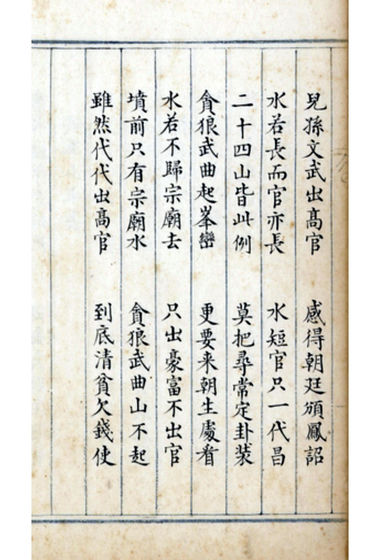 兒孫文武出高官　感得朝廷頒鳳詔
水若長而官亦長　水短官只一代昌
二十四山皆此例　莫把尋常定卦裝
貪狼武曲起峯巒　更要来朝生處看
水若不歸宗廟去　只出豪富不出官
墳前只有宗廟水　貪狼武曲山不起
雖然代代出高官　到底清貧欠錢使